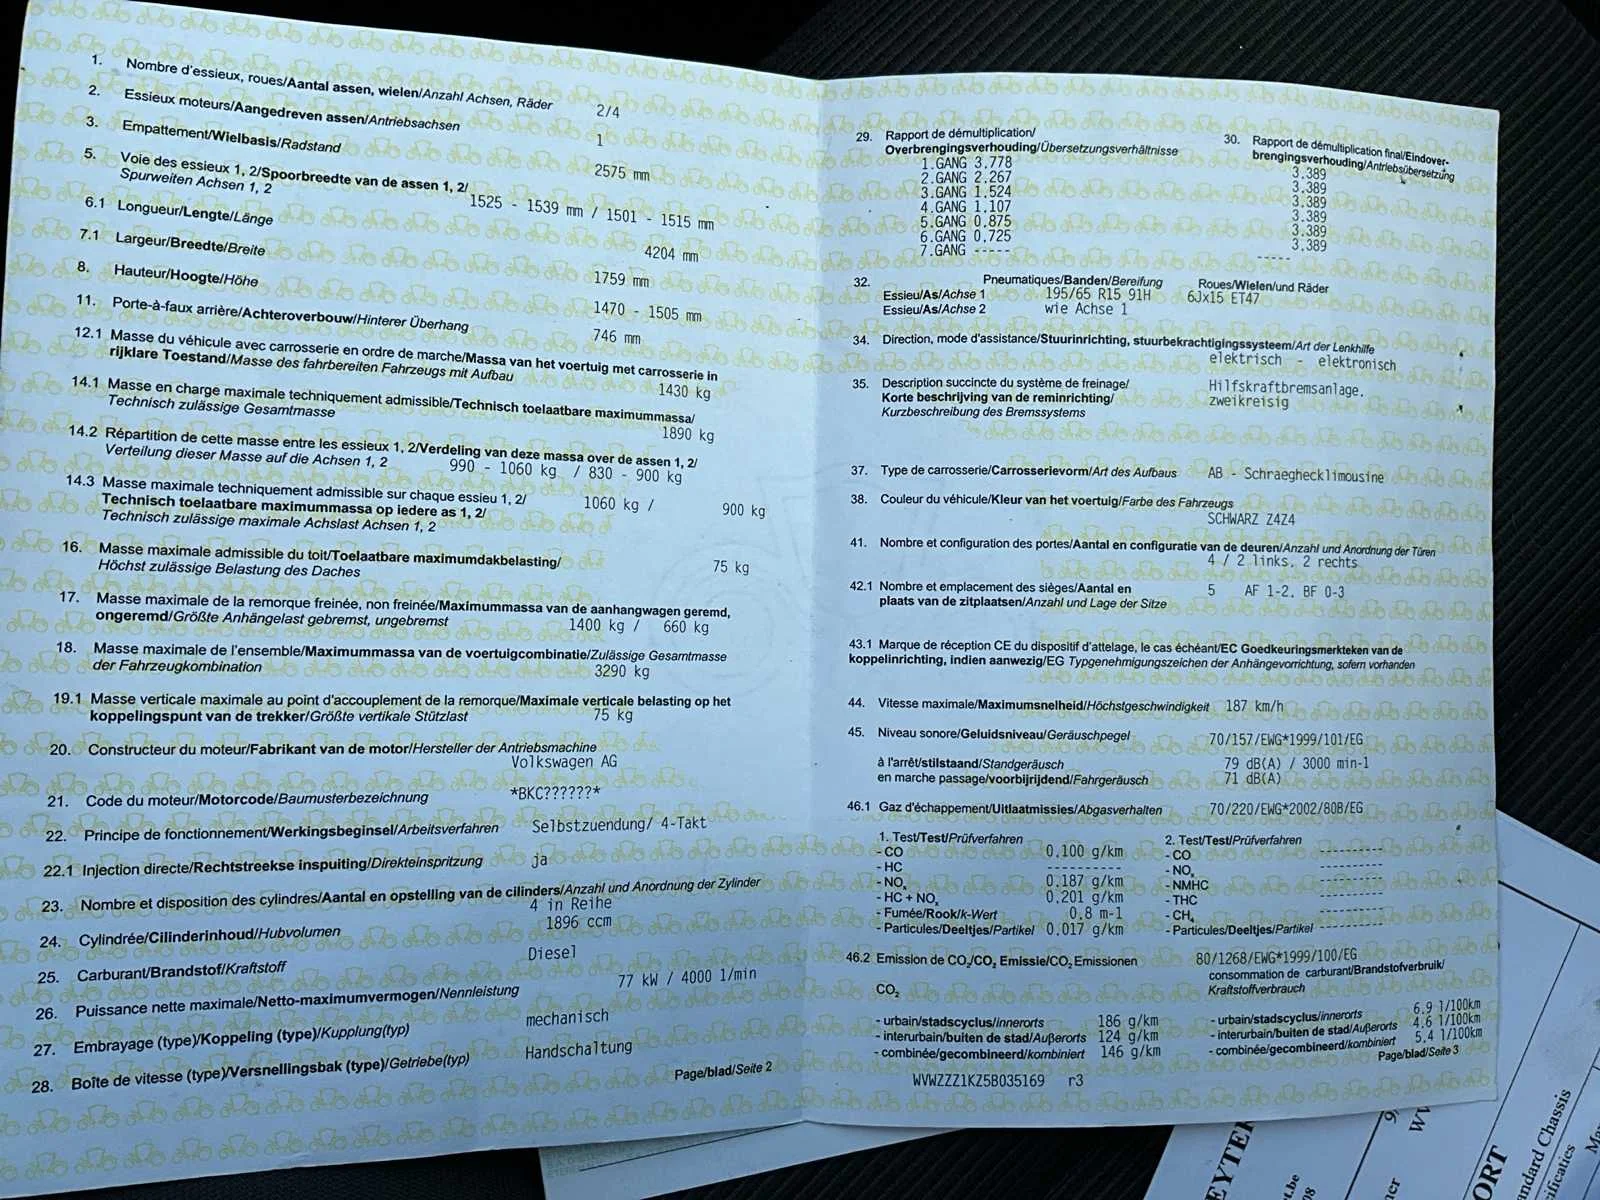 1. Nombre d'essieux, roues/Aantal assen, wielen/Anzahl Achsen, Räder 2/4
2. Essieux moteurs/Aangedreven assen/Antriebsachsen 1
3. Empattement/Wielbasis/Radstand 2575 mm
5. Voie des essieux 1, 2/Spoorbreedte van de assen 1, 2/
Spurweiten Achsen 1, 2 1525 - 1539 mm / 1501 - 1515 mm
6.1 Longueur/Lengte/Länge 4204 mm
7.1 Largeur/Breedte/Breite 1759 mm
8. Hauteur/Hoogte/Höhe 1470 - 1505 mm
11. Porte-à-faux arrière/Achteroverbouw/Hinterer Überhang 746 mm
12.1 Masse du véhicule avec carrosserie en ordre de marche/Massa van het voertuig met carrosserie in
rijklare Toestand/Masse des fahrbereiten Fahrzeugs mit Aufbau 1430 kg
14.1 Masse en charge maximale techniquement admissible/Technisch toelaatbare maximummassa/
Technisch zulässige Gesamtmasse 1890 kg
14.2 Répartition de cette masse entre les essieux 1, 2/Verdeling van deze massa over de assen 1, 2/
Verteilung dieser Masse auf die Achsen 1, 2 990 - 1060 kg / 830 - 900 kg
14.3 Masse maximale techniquement admissible sur chaque essieu 1, 2/ 1060 kg / 900 kg
Technisch toelaatbare maximummassa op iedere as 1, 2/
Technisch zulässige maximale Achslast Achsen 1, 2
16. Masse maximale admissible du toit/Toelaatbare maximumdakbelasting/
Höchst zulässige Belastung des Daches 75 kg
17. Masse maximale de la remorque freinée, non freinée/Maximummassa van de aanhangwagen geremd,
ongeremd/Größte Anhängelast gebremst, ungebremst 1400 kg / 660 kg
18. Masse maximale de l'ensemble/Maximummassa van de voertuigcombinatie/Zulässige Gesamtmasse
der Fahrzeugkombination 3290 kg
19.1 Masse verticale maximale au point d'accouplement de la remorque/Maximale verticale belasting op het
koppelingspunt van de trekker/Größte vertikale Stützlast 75 kg
20. Constructeur du moteur/Fabrikant van de motor/Hersteller der Antriebsmaschine
Volkswagen AG
21. Code du moteur/Motorcode/Baumusterbezeichnung *BKC??????*
22. Principe de fonctionnement/Werkingsbeginsel/Arbeitsverfahren Selbstzuendung/ 4-Takt
22.1 Injection directe/Rechtstreekse inspuiting/Direkteinspritzung ja
23. Nombre et disposition des cylindres/Aantal en opstelling van de cilinders/Anzahl und Anordnung der Zylinder
4 in Reihe
24. Cylindrée/Cilinderinhoud/Hubvolumen 1896 ccm
25. Carburant/Brandstof/Kraftstoff Diesel
26. Puissance nette maximale/Netto-maximumvermogen/Nennleistung 77 kW / 4000 1/min
27. Embrayage (type)/Koppeling (type)/Kupplung(typ) mechanisch
28. Boîte de vitesse (type)/Versnellingsbak (type)/Getriebe(typ) Handschaltung
Page/blad/Seite 2
29. Rapport de démultiplication/
Overbrengingsverhouding/Übersetzungsverhältnisse
30. Rapport de démultiplication final/Eindover-
brengingsverhouding/Antriebsübersetzung
1.GANG 3.778 3.389
2.GANG 2.267 3.389
3.GANG 1.524 3.389
4.GANG 1.107 3.389
5.GANG 0.875 3.389
6.GANG 0.725 3.389
7.GANG ----- -----
32. Pneumatiques/Banden/Bereifung Roues/Wielen/und Räder
Essieu/As/Achse 1 195/65 R15 91H 6Jx15 ET47
Essieu/As/Achse 2 wie Achse 1
34. Direction, mode d'assistance/Stuurinrichting, stuurbekrachtigingssysteem/Art der Lenkhilfe
elektrisch - elektronisch
35. Description succincte du système de freinage/ Hilfskraftbremsanlage.
Korte beschrijving van de reminrichting/ zweikreisig
Kurzbeschreibung des Bremssystems
37. Type de carrosserie/Carrosserievorm/Art des Aufbaus AB - Schraeghecklimousine
38. Couleur du véhicule/Kleur van het voertuig/Farbe des Fahrzeugs
SCHWARZ Z4Z4
41. Nombre et configuration des portes/Aantal en configuratie van de deuren/Anzahl und Anordnung der Türen
4 / 2 links. 2 rechts
42.1 Nombre et emplacement des sièges/Aantal en 5 AF 1-2. BF 0-3
plaats van de zitplaatsen/Anzahl und Lage der Sitze
43.1 Marque de réception CE du dispositif d'attelage, le cas échéant/EC Goedkeuringsmerkteken van de
koppelinrichting, indien aanwezig/EG Typgenehmigungszeichen der Anhängevorrichtung, sofern vorhanden
44. Vitesse maximale/Maximumsnelheid/Höchstgeschwindigkeit 187 km/h
45. Niveau sonore/Geluidsniveau/Geräuschpegel 70/157/EWG*1999/101/EG
à l'arrêt/stilstaand/Standgeräusch 79 dB(A) / 3000 min-1
en marche passage/voorbijrijdend/Fahrgeräusch 71 dB(A)
46.1 Gaz d'échappement/Uitlaatmissies/Abgasverhalten 70/220/EWG*2002/80B/EG
1. Test/Test/Prüfverfahren 2. Test/Test/Prüfverfahren
- CO 0.100 g/km - CO ----------
- HC ---------- - NOx ----------
- NOx 0.187 g/km - NMHC ----------
- HC + NOx 0.201 g/km - THC ----------
- Fumée/Rook/k-Wert 0.8 m-1 - CH4 ----------
- Particules/Deeltjes/Partikel 0.017 g/km - Particules/Deeltjes/Partikel ----------
46.2 Emission de CO2/CO2 Emissie/CO2 Emissionen 80/1268/EWG*1999/100/EG
consommation de carburant/Brandstofverbruik/
CO2 Kraftstoffverbrauch
- urbain/stadscyclus/innerorts 186 g/km - urbain/stadscyclus/innerorts 6.9 l/100km
- interurbain/buiten de stad/Außerorts 124 g/km - interurbain/buiten de stad/Außerorts 4.6 l/100km
- combinée/gecombineerd/kombiniert 146 g/km - combinée/gecombineerd/kombiniert 5.4 l/100km
Page/blad/Seite 3
WVWZZZ1KZ5B035169 r3
EYTE
ORT
ndard Chassis
ificatics